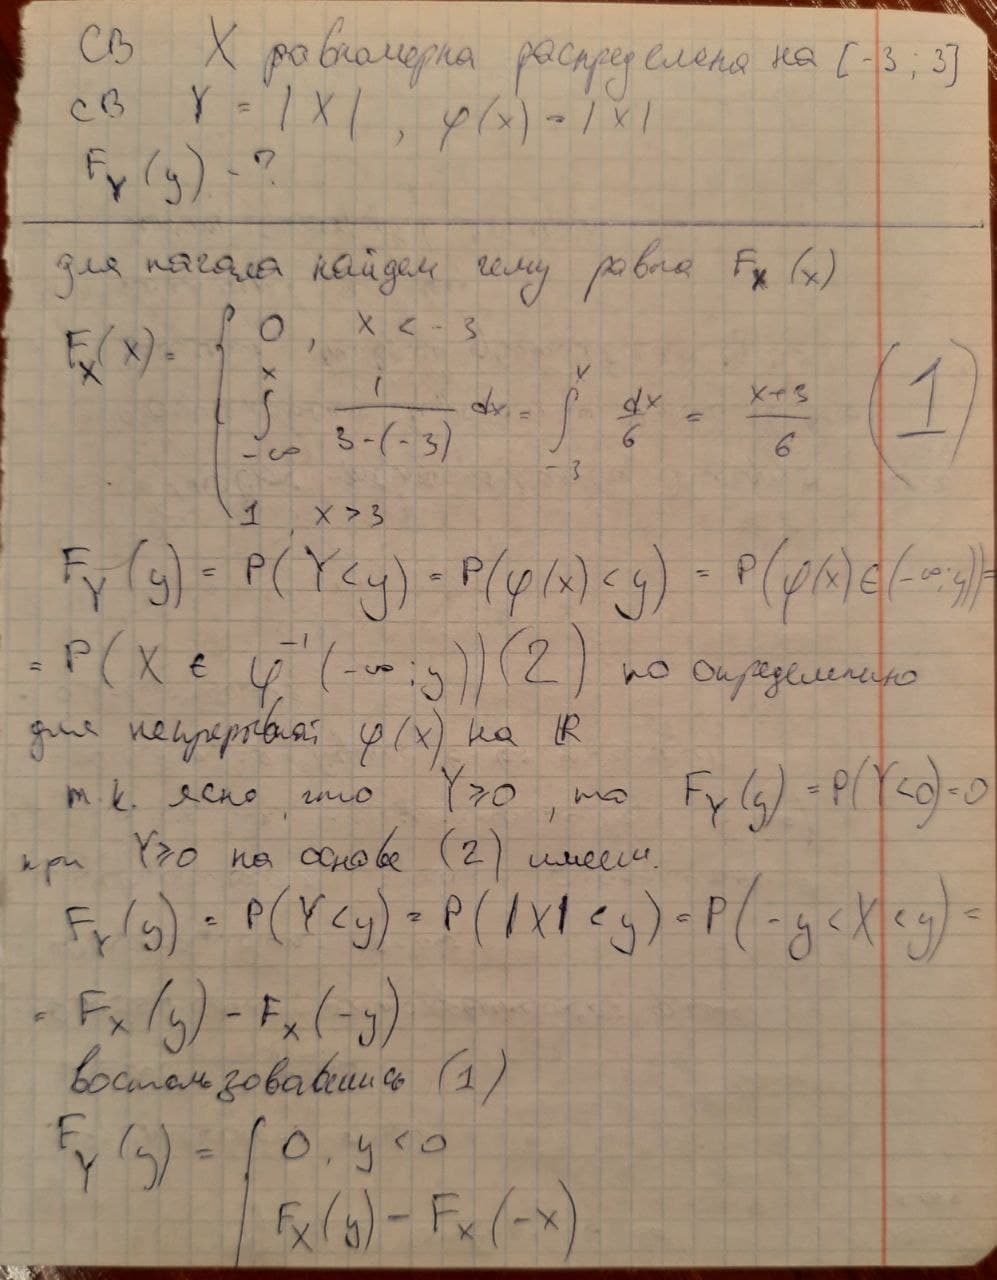 СВ X равномерна распределена на [-3; 3]
СВ Y = |X|, φ(x) = |x|
F_Y(y) - ?
для начала найдем чему равна F_X(x)
F_X(x) = { 0, x < -3
∫_{-∞}^{x} 1/(3-(-3)) dx = ∫_{-3}^{x} dx/6 = (x+3)/6 (1)
1, x > 3
F_Y(y) = P(Y < y) = P(φ(x) < y) = P(φ(x) ∈ (-∞; y)) =
= P(X ∈ φ^{-1}(-∞; y)) (2) по определению
для непрерывной φ(x) на ℝ
т.к. ясно, что Y ≥ 0, то F_Y(y) = P(Y < 0) = 0
при Y ≥ 0 на основе (2) имеем.
F_Y(y) = P(Y < y) = P(|X| < y) = P(-y < X < y) =
= F_X(y) - F_X(-y)
воспользовавшись (1)
F_Y(y) = { 0, y < 0
F_X(y) - F_X(-x)